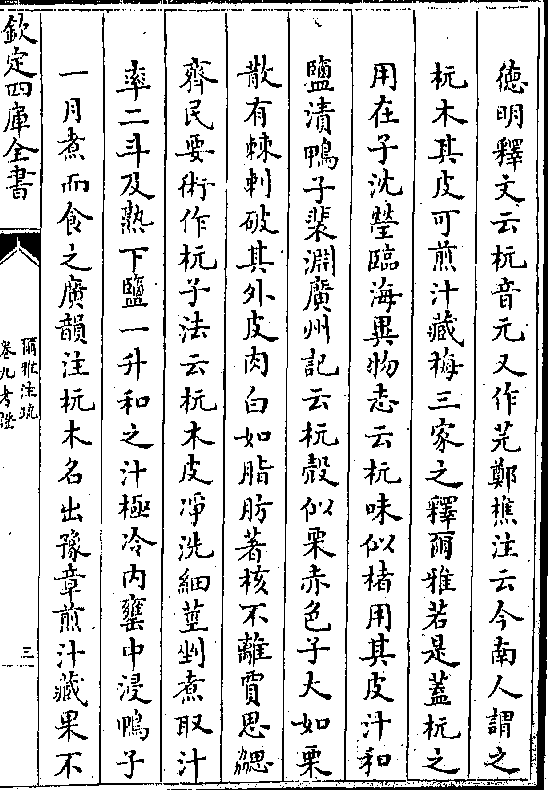 德明釋文云杬音元又作芫鄭樵注云今南人謂之
杬木其皮可煎汁藏梅三家之釋爾雅若是蓋杬之
用在子沈瑩臨海異物志云杬味似楮用其皮汁和
鹽漬鴨子裴淵廣州記云杬殻似栗赤色子大如栗
散有棘刺破其外皮肉白如脂肪著核不離賈思勰
齊民要術作杬子法云杬木皮淨洗細莖剉煮取汁
率二斗及熟下鹽一升和之汁極冷内甕中浸鴨子
一月煮而食之廣韻注杬木名出豫章煎汁藏果不
欽定四庫全書
爾雅注疏
卷九考證
三